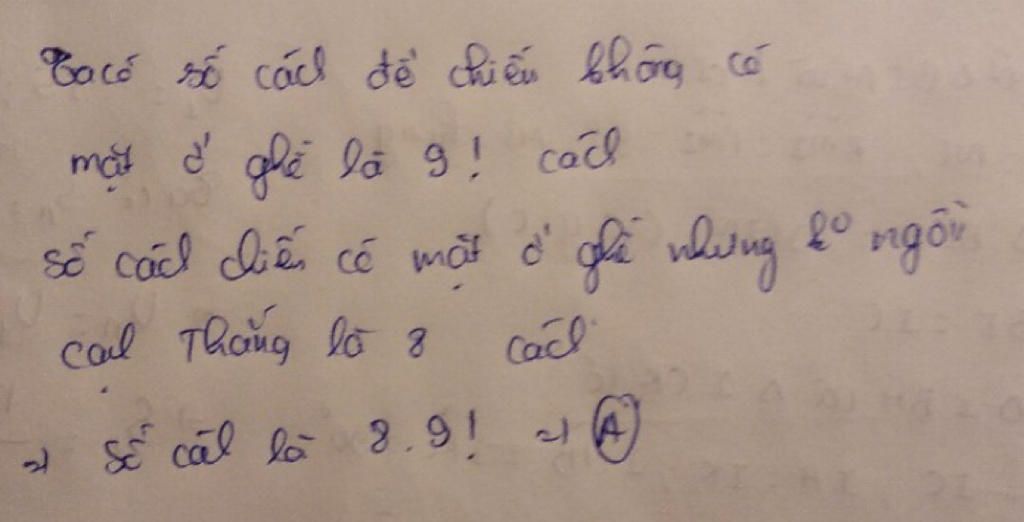 Ta có số cách để chiến không có
mặt ở ghế là 9! cách
số cách chiến có mặt ở ghế nhưng k⁰ ngồi
cạnh Thắng là 8 cách
⇒ số cách là 8.9! ⇒ A